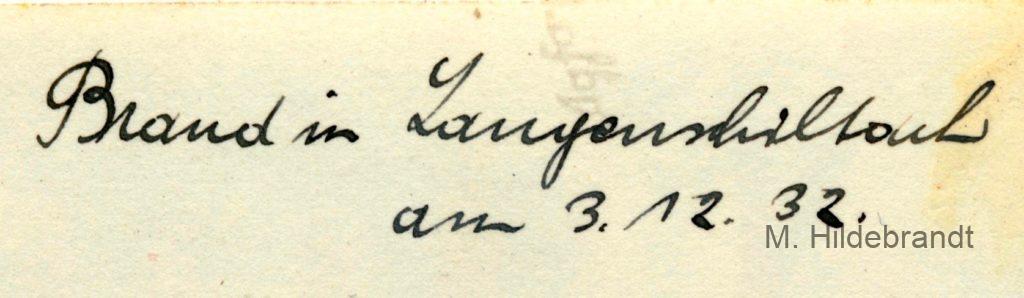 Agfa
Brand in Langenschiltach
am 3. 12. 32.
M. Hildebrandt